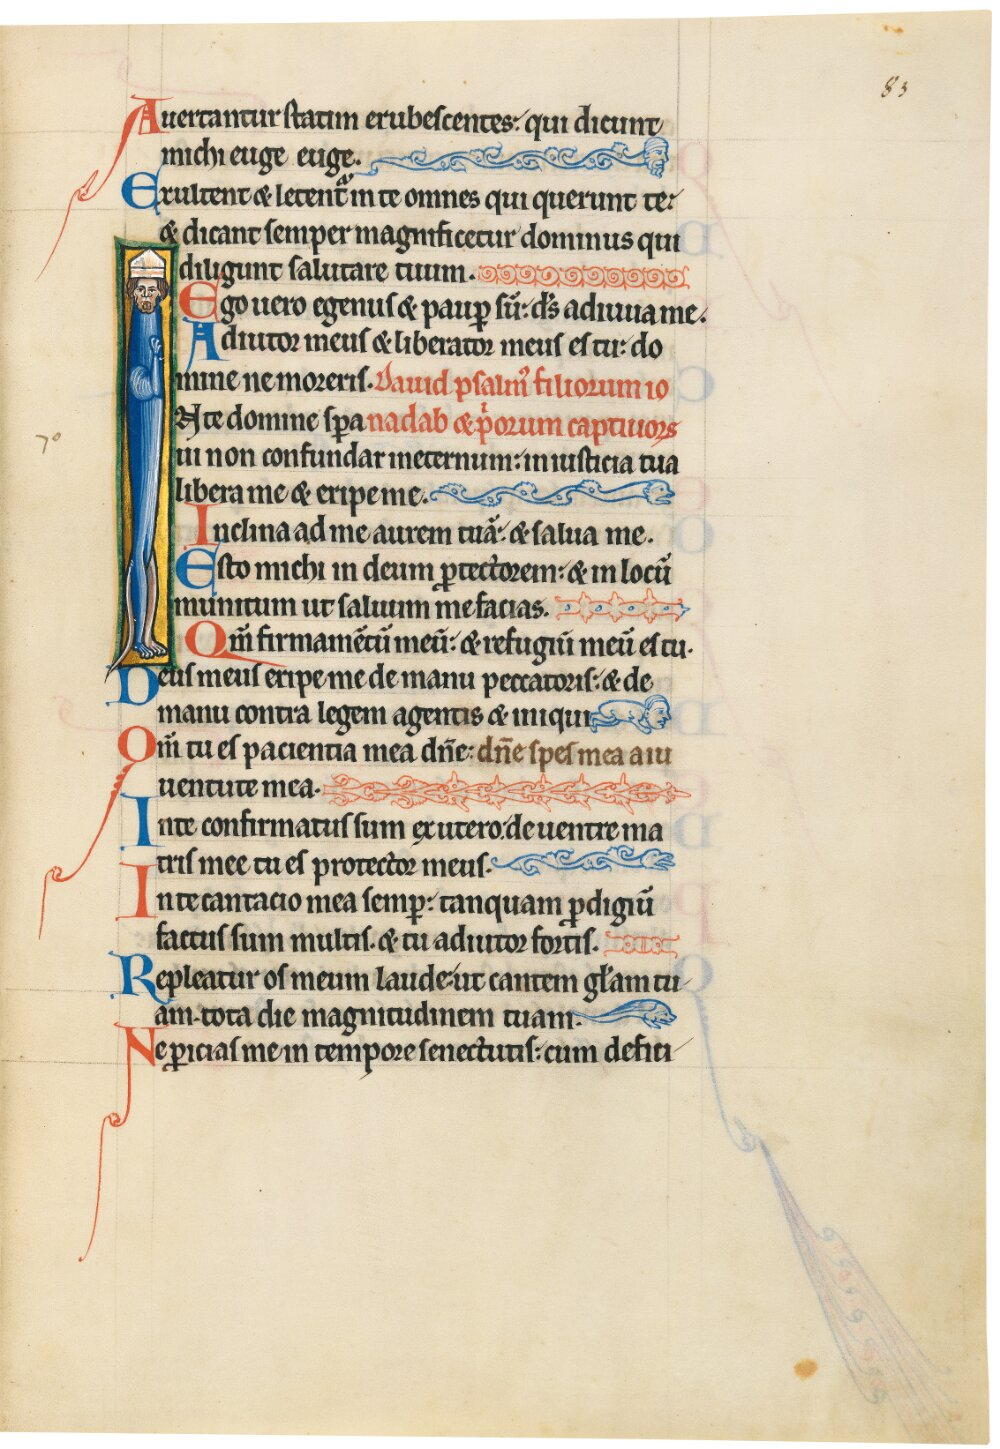 83
Auertantur statim erubescentes: qui dicunt
michi euge euge.
Exultent & letent᷑ in te omnes qui querunt te:
& dicant semper magnificetur dominus qui
diligunt salutare tuum.
Ego uero egenus & paup sũ: ds adiuua me.
Adiutor meus & liberator meus es tu: do
mine ne moreris. Dauid psalm filiorum io
N te domine spa nadab & p̲orum captiuorꝝ
ui non confundar ineternum: in iusticia tua
libera me & eripe me.
Inclina ad me aurem tuã: & salua me.
Esto michi in deum ptectorem: & in locũ
munitum ut saluum me facias.
70
Qm̃ firmamẽtũ meũ: & refugiũ meũ es tu.
Deus meus eripe me de manu peccatoris: & de
manu contra legem agentis & iniqui
Qm̃ tu es pacientia mea dñe: dñe spes mea a iu
uentute mea.
In te confirmatus sum ex utero: de uentre ma
tris mee tu es protector meus.
In te cantacio mea semp: tanquam pdigiũ
factus sum multis. & tu adiutor fortis.
Repleatur os meum laude: ut cantem glam tu
am. tota die magnitudinem tuam.
Ne picias me in tempore senectutis: cum defici